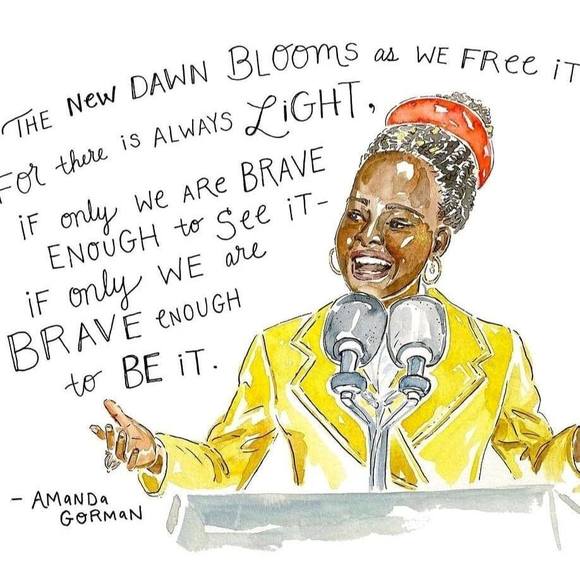 THE NEW DAWN BLOOMS as WE FREE iT
FOR there is ALWAYS LiGHT,
iF only WE ARE BRAVE
ENOUGH to SEE iT-
iF only WE are
BRAVE ENOUGH
to BE iT.
- AMANDA
GORMAN